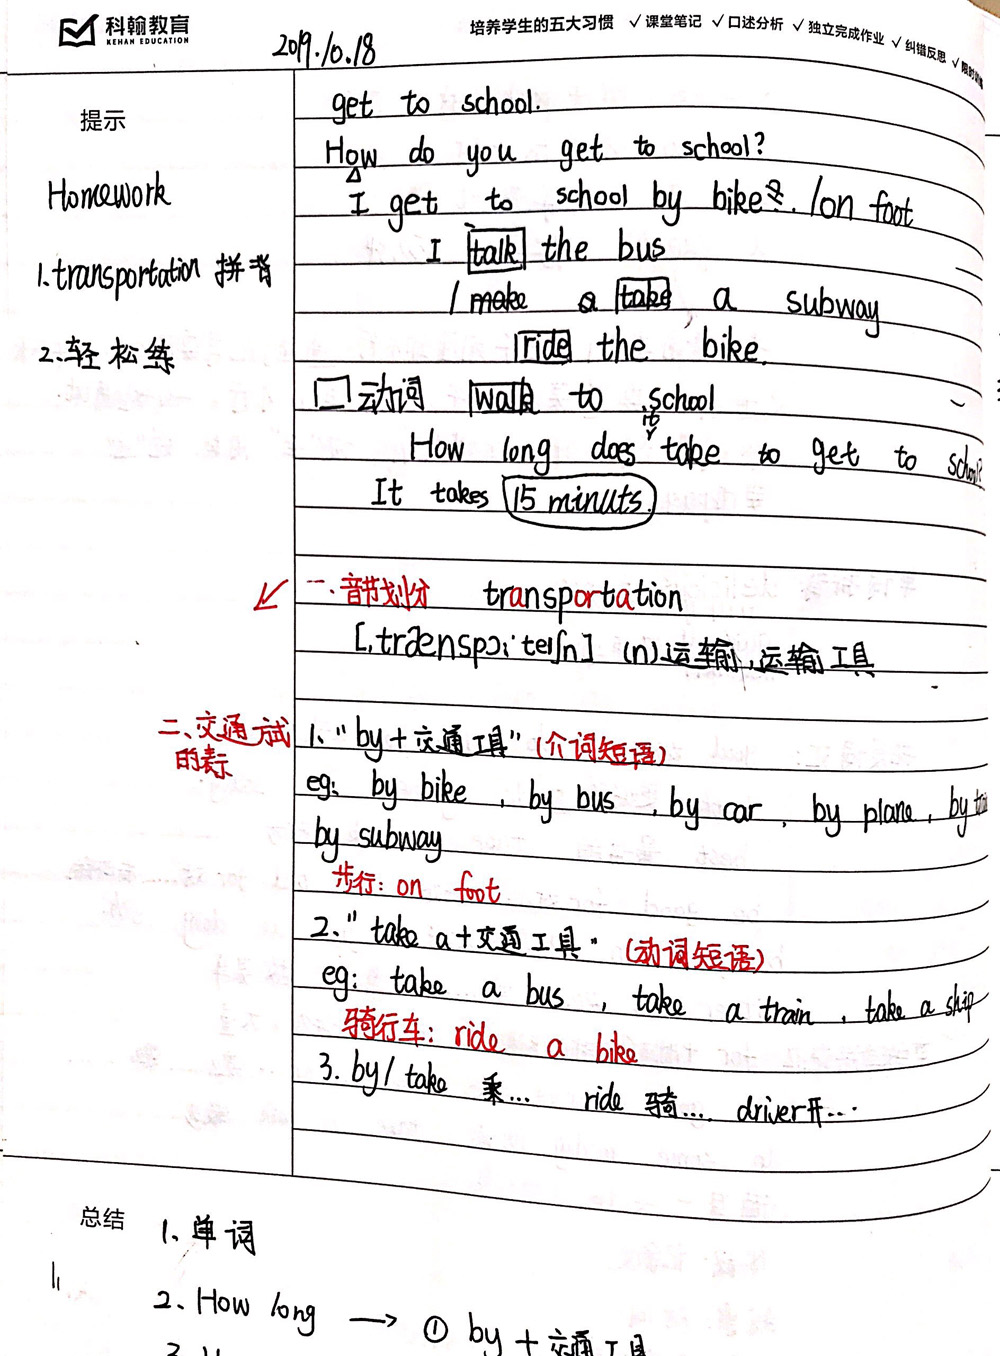 科翰教育
KEHAN EDUCATION
培养学生的五大习惯 √课堂笔记 √口述分析 √独立完成作业 √纠错反思
2019.10.18
提示
get to school.
How do you get to school?
Homework
I get to school by bike. /on foot
I talk the bus
1.transportation 拼背
/ make a take a subway
2.轻松练
ride the bike.
动词 walk to school
it
How long does take to get to school?
It takes 15 minuts.
一.音节划分 transportation
[ˌtrænspɔːˈteɪʃn] (n)运输,运输工具
二、交通方式的表示
1、"by+交通工具"(介词短语)
eg: by bike , by bus , by car , by plane , by train
by subway
步行: on foot
2."take a+交通工具" (动词短语)
eg: take a bus , take a train , take a ship
骑行车: ride a bike
3. by/ take 乘... ride 骑... driver开...
总结
1、单词
2、How long → ① by + 交通工具